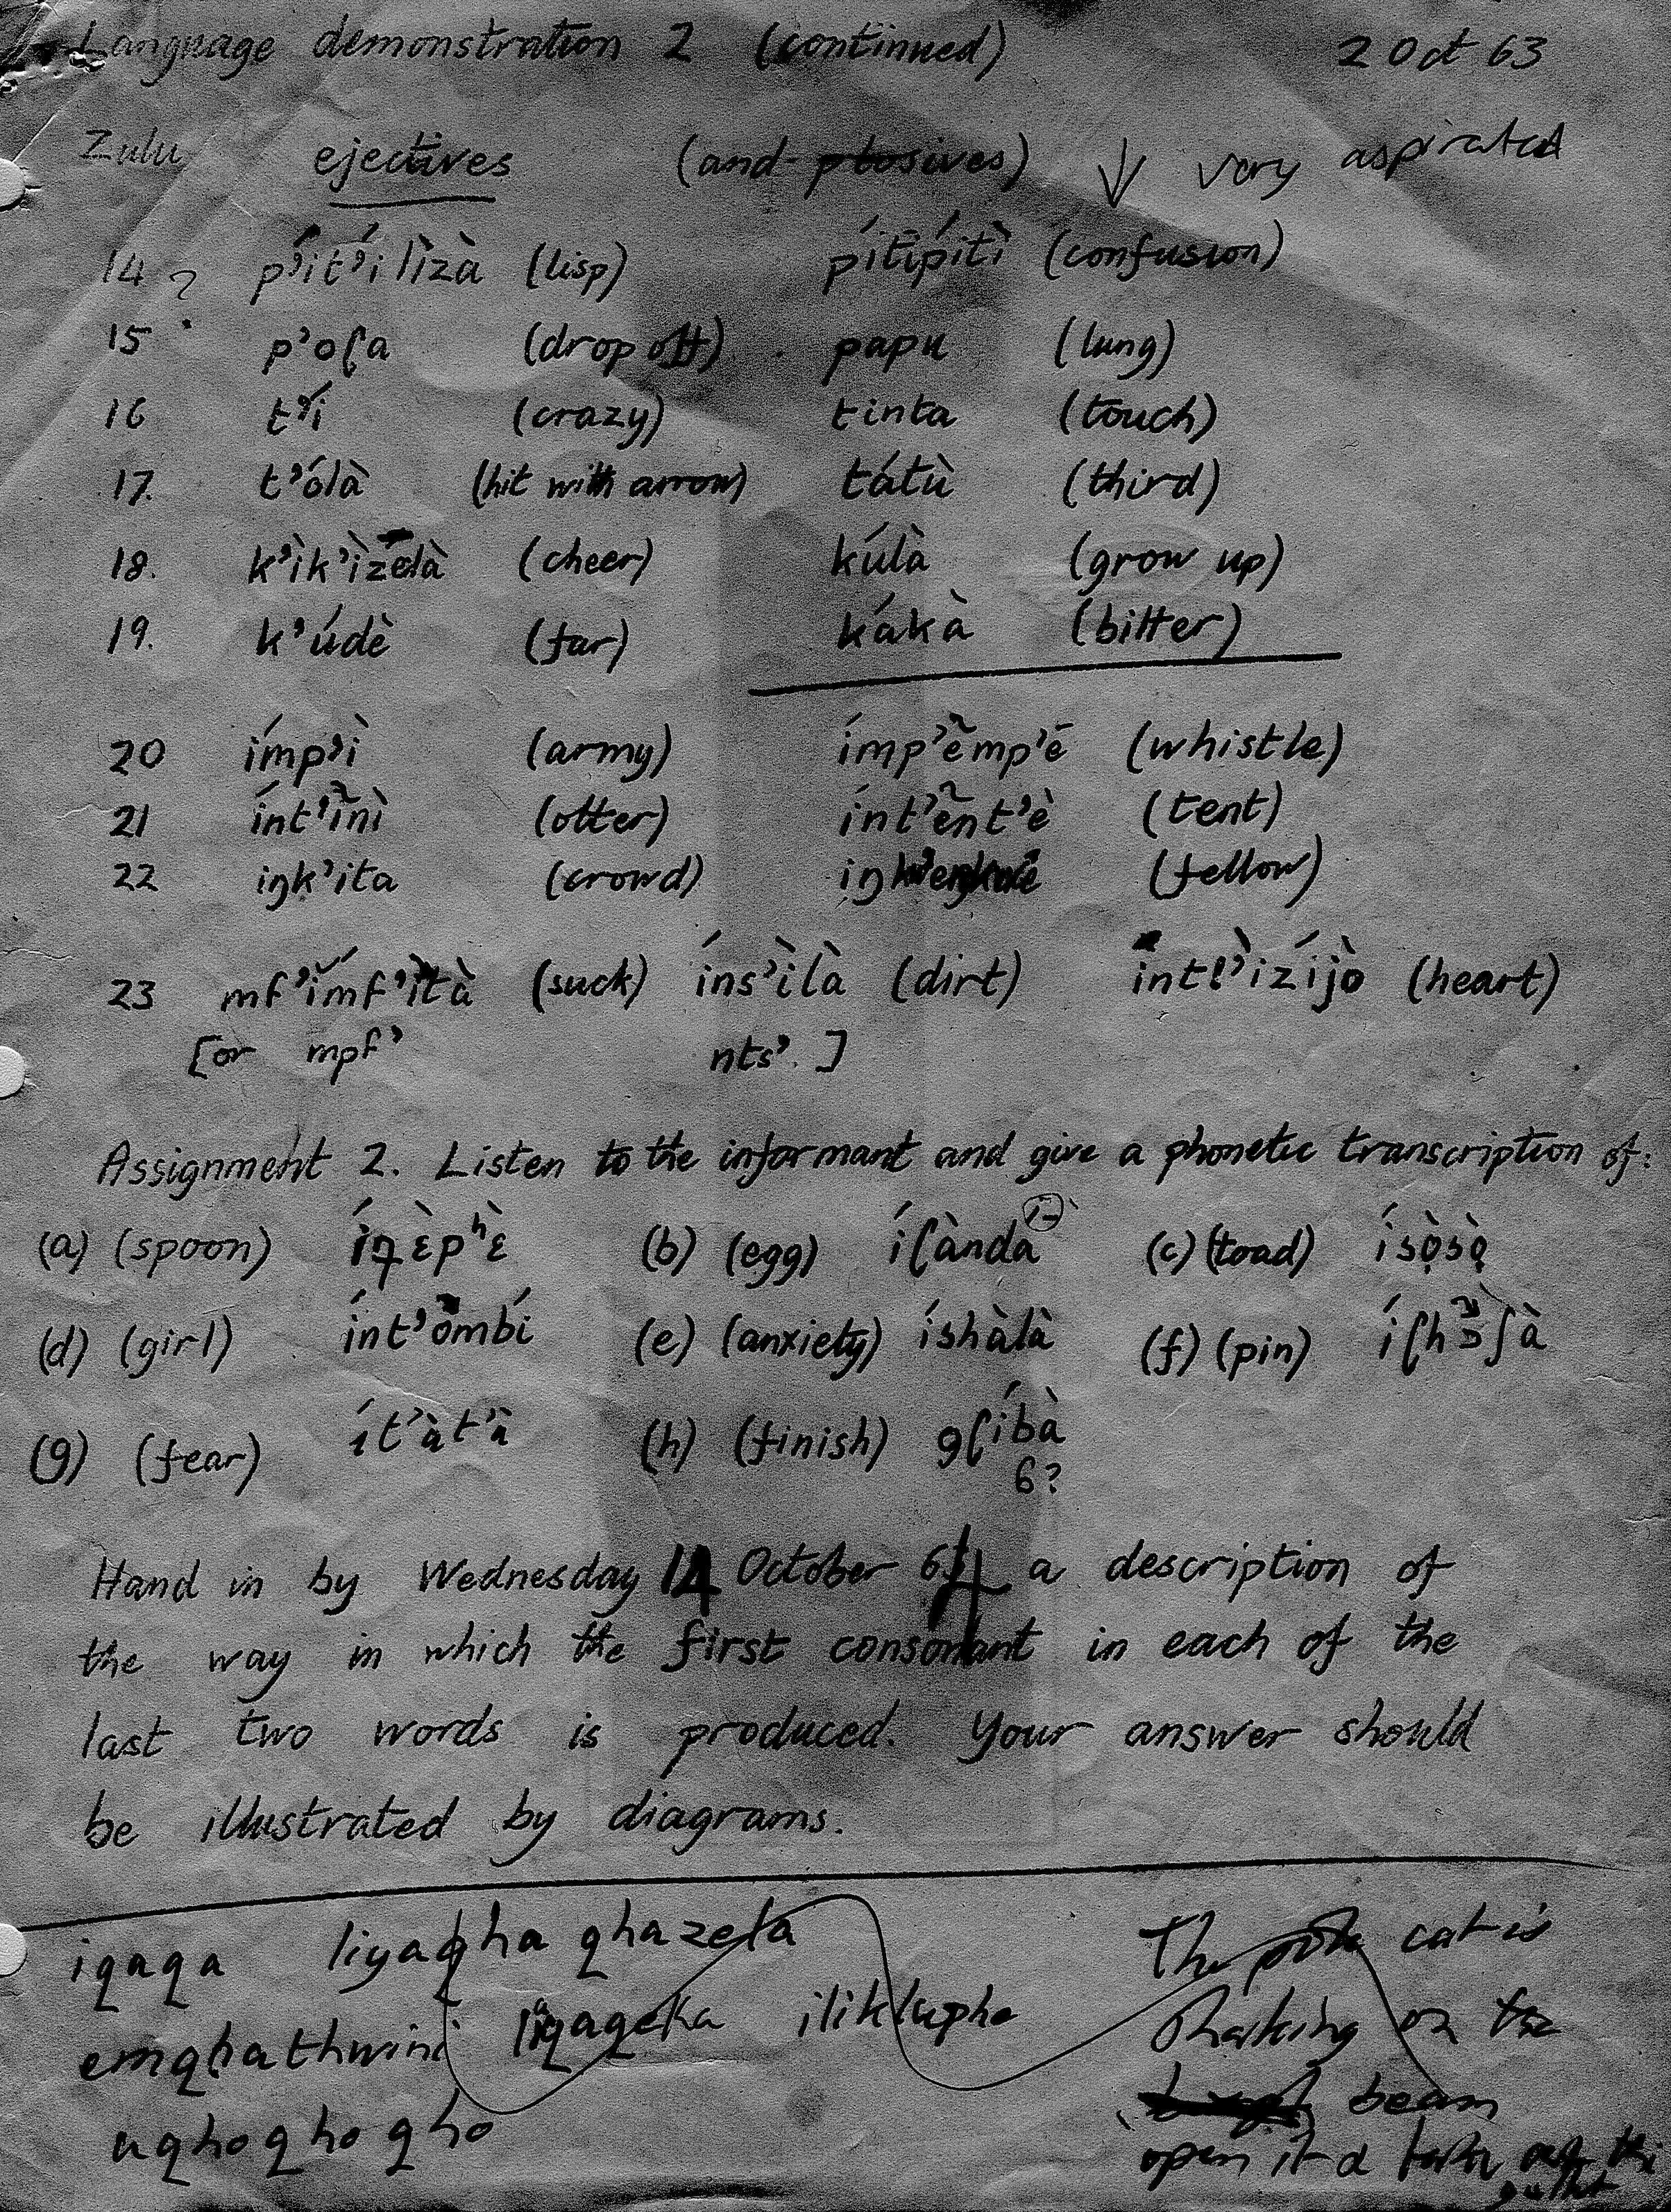 Language demonstration 2 (continued) 2 Oct 63
Zulu ejectives (and plosives) ↓ very aspirated
14 ? p’ít’ílìzà (lisp) pítìpítì (confusion)
15 p’oʃa (drop off) papu (lung)
16 t’í (crazy) tinta (touch)
17. t’ólà (hit with arrow) tátù (third)
18. k’ìk’ìzelà (cheer) kúlà (grow up)
19. k’údè (far) kákà (bitter)
20 ímp’ì (army) ímp’ẽmp’é (whistle)
21 ínt’ĩnì (otter) ínt’ẽnt’è (tent)
22 iŋk’ita (crowd) (fellow)
23 mf’ímf’ìtà (suck) íns’ìlà (dirt) (heart)
[or mpf’ nts’. ]
Assignment 2. Listen to the informant and give a phonetic transcription of:
(a) (spoon) (b) (egg) (c) (toad) ísọ̀sọ̀
(d) (girl) ínt’ombí (e) (anxiety) íshàlà (f) (pin)
(g) (fear) ít’àt’à (h) (finish) gʃíbà
ɓ?
Hand in by Wednesday 14 October 64 a description of
the way in which the first consonant in each of the
last two words is produced. Your answer should
be illustrated by diagrams.
iqaqa liyaqha qhazela The cat is
emqhathwini liqaqeka on the
beam
uqhoqhoqho open it